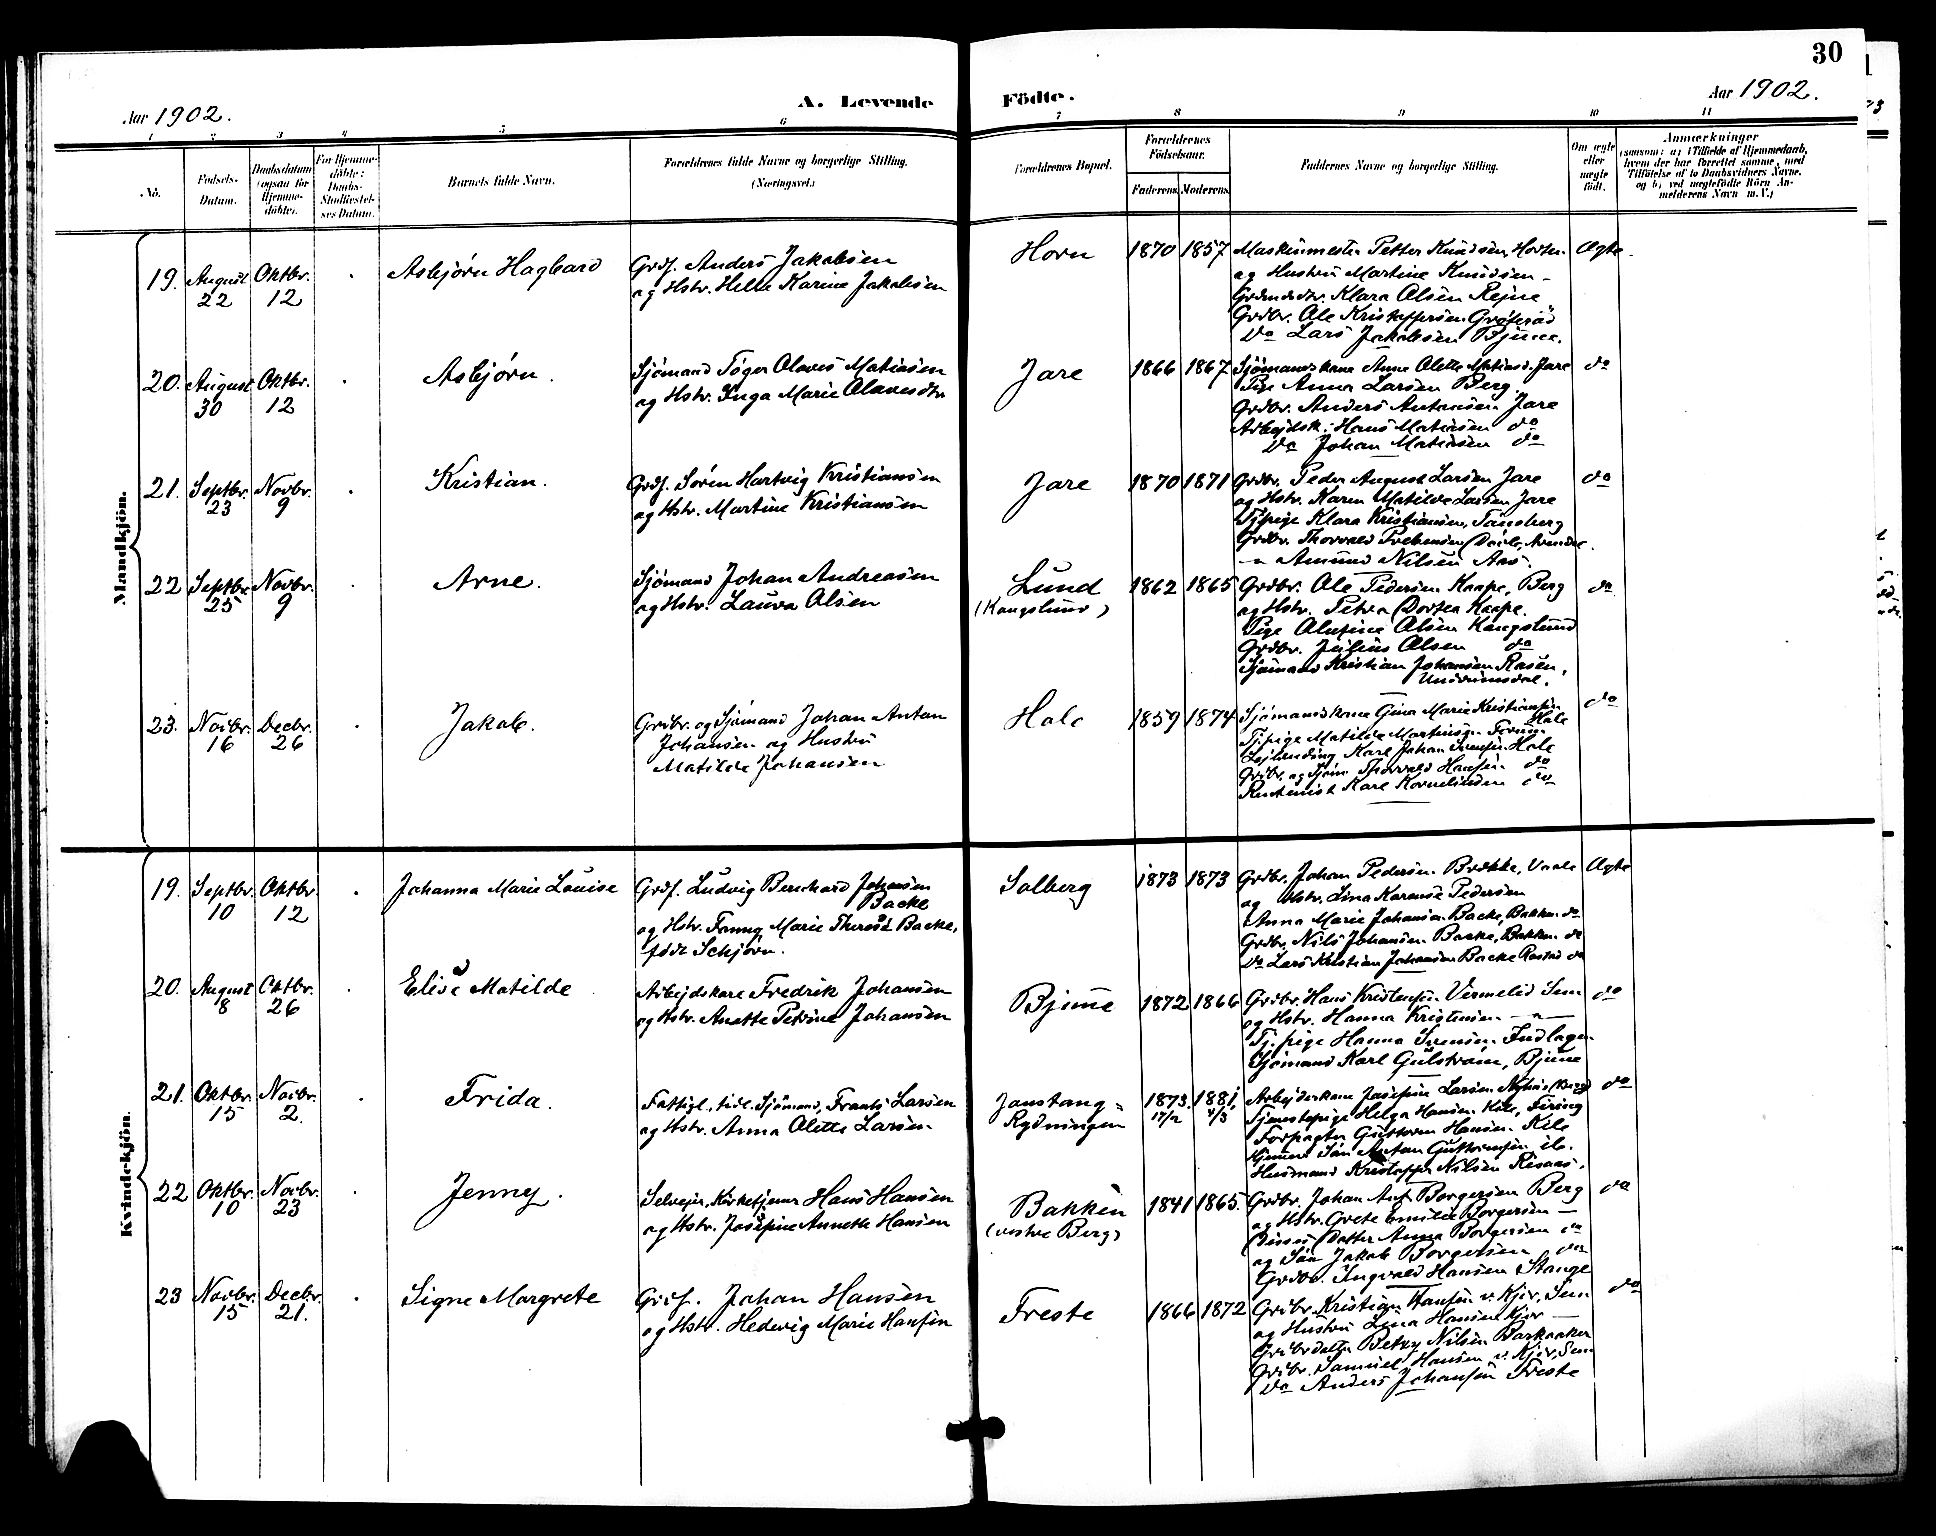 30
Aar 1902.
A. Levende Födte.
Aar 1902.
1 2 3 4 5 6 7 8 9 10 11
No.
Födsels-Datum.
Daabsdatum (ogsaa for Hjemme-döbte).
For Hjemme-döbte: Daabs-Stadfæstel-ses Datum.
Barnets fulde Navn.
Forældrenes fulde Navne og borgerlige Stilling.
(Næringsvei.)
Forældrenes Bopæl.
Forældrenes Födselsaar.
Faderens. Moderens.
Faddernes Navne og borgerlige Stilling.
Om ægte eller uægte födt.
Anmærkninger
(saasom: a) i Tilfælde af Hjemmedaab,
hvem der har forrettet samme, med
Tilföielse af to Daabsvidners Navne,
og b) ved uægtefödte Börn An-
melderens Navn m. V.)
Mandkjön.
19. August 22 Oktbr. 12 Asbjørn Hagbard
Grdf. Anders Jakobsen
og Hstr. Helene Karine Jakobsen
Horn 1870 1857
Maskinmester Petter Knudsen, Horten
og Hustru Martine Knudsen
Klara Olsen Rejne
Grdbr. Ole Kristoffersen
Do Lars Jakobsen Bjune.
Ægte
20. August 30 Oktbr. 12 Asbjørn.
Sjømand Olaves Matiasen
og Hstr. Inga Marie Olavesdtr
Jare 1866 1867
Sjømandskone Anne Olette Matiasd. Jare
Pige Anna Larsen Berg.
Grdbr. Anders Antonsen Jare
Arbejdsk. Hans Matiasen do
Do Johan Matiasen do
do
21. Septbr. 23 Novbr. 9 Kristian.
Grdf. Søren Hartvig Kristiansen
og Hstr. Martine Kristiansen
Jare 1870 1871
Grdbr. Peder August Larsen Jare
og Hstr. Karen Matilde Larsen Jare
Tjpige Klara Kristiansen, Tønsberg
Grdbr. Thorvald
Amund Nilsen Aas.
do
22 Septbr. 25 Novbr. 9 Arne.
Sjømand Johan Andreasen
og Hstr. Laura Olsen
Lund
(Kongslund)
1862 1865
Grdbr. Ole Pedersen Kaape, Berg
og Hstr. Petra Dortea Kaape.
Pige Olufine Olsen Kongslund
Grdbr. Julius Olsen do
Sjømand Kristian Johansen Rosen,
Undrumsdal.
do
23. Novbr. 16 Decbr. 26 Jakob.
Grdbr. og Sjømand Johan Anton
Johansen og Hustru
Matilde Johansen
Hole 1859 1874
Sjømandskone Gina Marie Kristiansen
Hole
Tjpige Matilde Martinsen
Karl Johan Svensen Hole
Grdbr. og Sjøm. Thorvald Hansen do
Karl Korneliusen do
do
Kvindekjön.
19. Septbr. 10 Oktbr. 12 Johanna Marie Louise
Grdf. Ludvig Bernhard Johansen
Backe
og Hstr. Fanny Marie Therese Backe,
født Schjørn.
Solberg 1873 1873
Grdbr. Johan Pedersen Brekke, Vaale
og Hstr. Lina Karense Pedersen
Anna Marie Johansen Backe, Bakken do
Grdbr. Nils Johansen Backe, Bakken do
Do Lars Kristian Johansen Backe Rostad do
Ægte
20. August 8 Oktbr. 26 Elise Matilde
Arbejdskare Fredrik Johansen
og Hstr. Anette Petrine Johansen
Bjune 1872 1866
Grdbr. Hans Kristensen Vermelid Sem
og Hstr. Hanna Kristensen
Tj. pige Hanna Svensen
Sjømand Karl Gulstrøm, Bjune
do
21. Oktbr. 15 Novbr. 2. Frida.
Fattigl., tidl. Sjømand, Frants Larsen
og Hstr. Anna Olette Larsen
Jonstang-
Rydningen
1873. 17/12 1881, 4/3
Arbejderkone Josefine Larsen
Tjenestepige Helga Hansen Kile,
Forpagter Guttorm Hansen Kile
Anton Guttormsen
Husmand Kristoffer Nilsen
do
22 Oktbr. 10 Novbr. 23 Jenny.
Selvejer, Kirketjener Hans Hansen
og Hstr. Josefine Annette Hansen
Bakken
(vestre Berg)
1841 1865.
Grdbr. Johan Ant. Borgersen Berg
og Hstr. Grete Emilie Borgersen
Disses Datter Anna Borgersen do
og Søn Jakob Borgersen do
Grdbr. Ingvald Hansen Stange
do
23 Novbr. 15 Decbr. 21. Signe Margrete
Grdf. Johan Hansen
og Hstr. Hedevig Marie Hansen
Freste 1866 1872
Grdbr. Kristian Hansen v. Kjær, Sem
og Hustru Lena Hansen Kjær
Grdbrdatter Betzy Nilsen Barkaaker
Grdbr. Samuel Hansen v. Kjær, Sem
Do Anders Johansen Freste
do